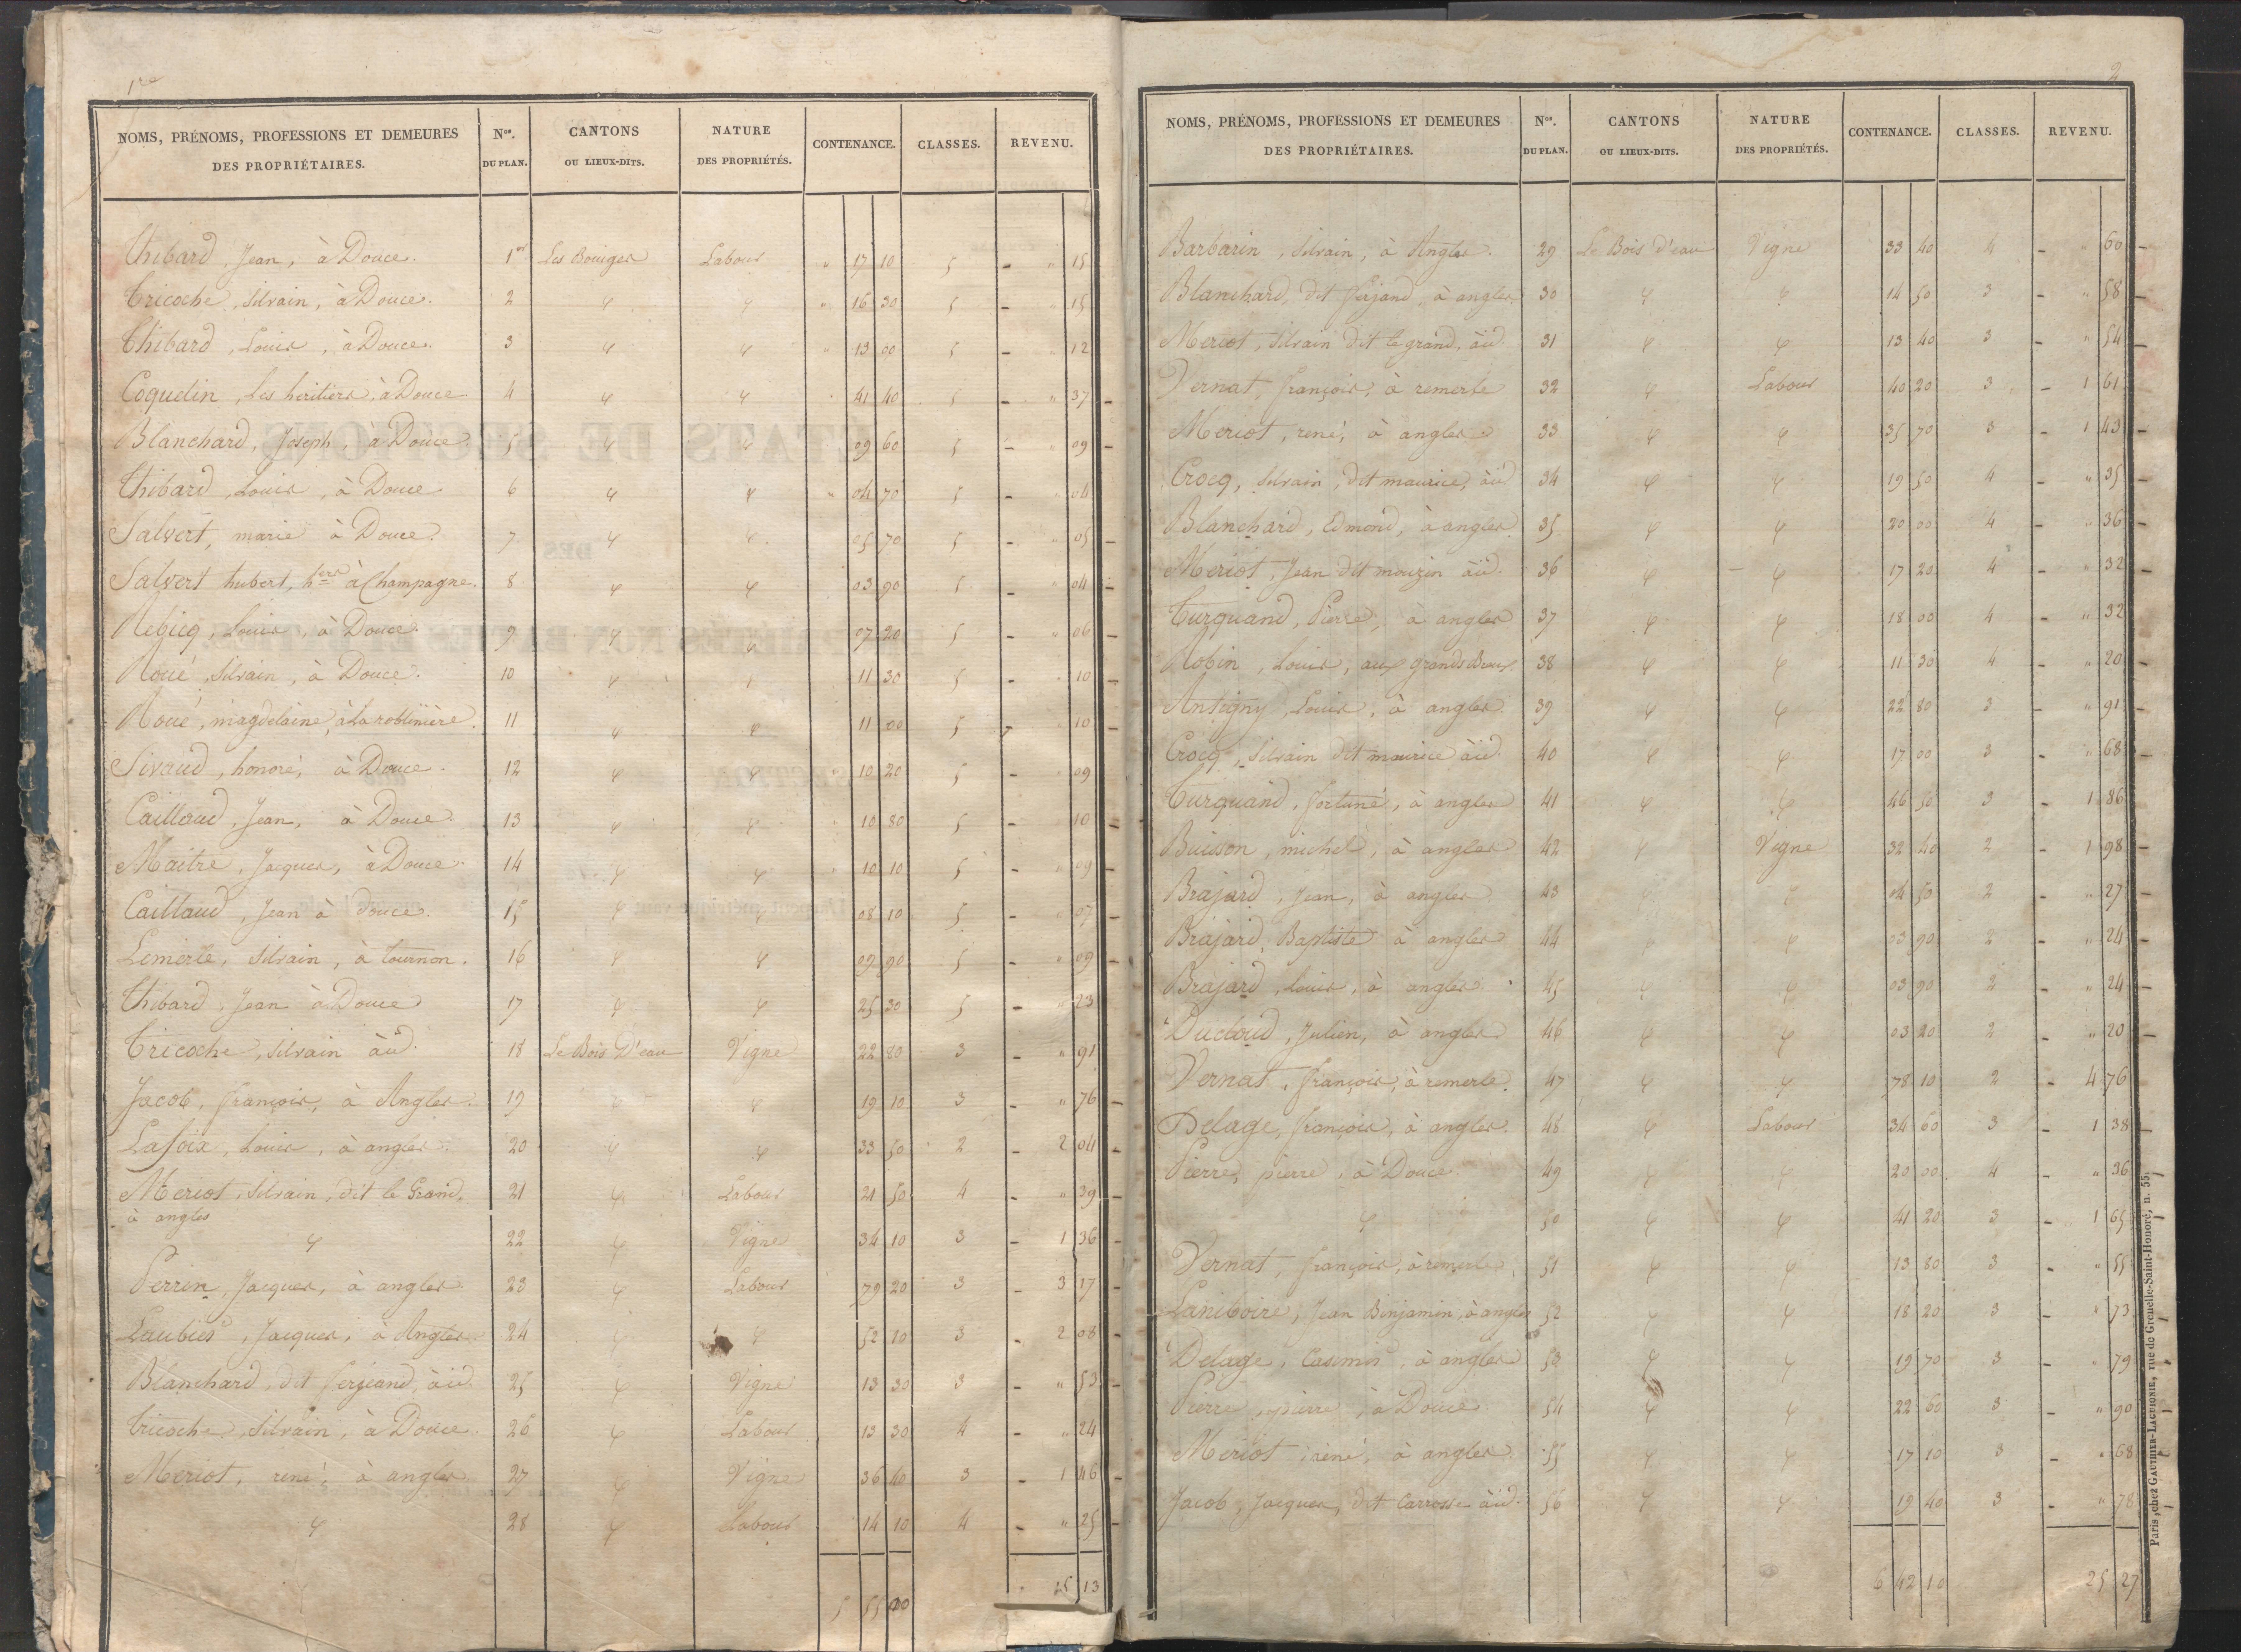 1re
NOMS, PRÉNOMS, PROFESSIONS ET DEMEURES DES PROPRIÉTAIRES. Nos. DU PLAN. CANTONS OU LIEUX-DITS. NATURE DES PROPRIÉTÉS. CONTENANCE. CLASSES. REVENU.
Thibard, Jean, à Douce. 1er Les Bouiges Labour " 17 10 5 - " 15
Tricoche, Silvain, à Douce. 2 φ φ " 16 30 5 - " 15
Thibard, Louis, à Douce. 3 φ φ " 13 00 5 - " 12
Coquelin, les héritiers, à Douce 4 φ φ " 41 40 5 - " 37
Blanchard, Joseph, à Douce. 5 φ φ 09 60 5 - " 09
Thibard, Louis, à Douce 6 φ φ " 04 70 5 - " 04
Salvert, marie à Douce. 7 φ φ 05 70 5 - " 05
Salvert hubert, hers à Champagne. 8 φ φ 03 90 5 - 04
Louis, à Douce. 9 φ φ 07 20 5 - " 06
Roué, Silvain, à Douce. 10 φ φ 11 30 5 - " 10
Roué, magdelaine, à La roblinière. 11 φ φ 11 00 5 - 10
Sivaud, honoré, à Douce. 12 φ φ " 10 20 5 - 09
Caillaud, Jean, à Douce. 13 φ φ " 10 80 5 - 10
Maitre, Jacques, à Douce. 14 φ φ " 10 10 5 - " 09
Caillaud, Jean à douce. 15 φ φ 08 10 5 - 07
Lemerle, Silvain, à tournon. 16 φ φ 09 90 5 - " 09
Thibard, Jean à Douce 17 φ φ 25 30 5 - " 23
Tricoche, Silvain àid. 18 Le Bois D'eau Vigne 22 80 3 - " 91
Jacob, françois, à Angles. 19 φ φ 19 10 3 - " 76
Lafoix, Louis, à angles. 20 φ φ 33 50 2 - 2 04
Meriot, Silvain, dit le Grand, 21 φ Labour 21 50 4 - " 39
à angles
φ 22 φ Vigne 34 10 3 - 1 36
Perrin, Jacques, à angles 23 φ Labour 79 20 3 - 3 17
Laubier, Jacques, à Angles. 24 φ φ 52 10 3 - 2 08
Blanchard, dit àid. 25 φ Vigne 13 30 3 - " 53
Tricoche, Silvain, à Douce. 26 φ Labour 13 30 4 - " 24
Meriot, rené, à angles 27 φ Vigne 36 40 3 - 1 46
φ 28 φ Labour 14 10 4 - " 25
5 55 15 13
2
NOMS, PRÉNOMS, PROFESSIONS ET DEMEURES DES PROPRIÉTAIRES. Nos. DU PLAN. CANTONS OU LIEUX-DITS. NATURE DES PROPRIÉTÉS. CONTENANCE. CLASSES. REVENU.
Barbarin, Silvain, à Angles. 29 Le Bois d'eau Vigne 33 40 4 - 60
Blanchard, dit à angles 30 φ φ 14 50 3 - " 58
Meriot, Silvain dit le grand, àid. 31 φ φ 13 40 3 - " 54
Vernat, françois, à remerle 32 φ Labour 40 20 3 - 1 61
Meriot, rené, à angles 33 φ φ 35 70 3 - 1 43
Crocq, Silvain, dit maurice, àid 34 φ φ 19 50 4 - " 35
Blanchard, Edmond, à angles 35 φ φ 20 00 4 - " 36
Meriot, Jean dit mouzin àid. 36 φ φ 17 20 4 - " 32
Turquand, Pierre, à angles 37 φ φ 18 00 4 - " 32
Robin, Louis, aux grands 38 φ φ 11 30 4 - " 20
Antigny, Louis, à angles. 39 φ φ 22 80 3 - " 91
Crocq, Silvain dit maurice àid. 40 φ φ 17 00 3 - " 68
Turquand, fortuné, à angles 41 φ φ 46 50 3 - 1 86
Buisson, michel, à angles 42 φ Vigne 32 40 2 - 1 98
Brajard, Jean, à angles 43 φ φ 04 50 2 - " 27
Brajard, Baptiste à angles 44 φ φ 03 90 2 - " 24
Brajard, Louis, à angles 45 φ φ 03 90 2 - " 24
Ducloud, Julien, à angles 46 φ φ 03 20 2 - " 20
Vernat, françois, à remerle. 47 φ φ 78 10 2 - 4 76
Delage, françois, à angles. 48 φ Labour 34 60 3 - 1 38
Pierre, pierre, à Douce 49 φ φ 20 00 4 - " 36
φ 50 φ φ 41 20 3 - 1 65
Vernat, françois, à remerle, 51 φ φ 13 80 3 - " 55
Laniboire, Jean Binjamin, à angles 52 φ φ 18 20 3 - " 73
Delage, Casimir, à angles 53 φ φ 19 70 3 - " 79
Pierre, pierre, à Douce 54 φ φ 22 60 3 - " 90
Meriot, rené, à angles. 55 φ φ 17 10 3 - " 68
Jacob, Jacques, dit Carrosse àid. 56 φ φ 19 40 3 - " 78
6 42 10 25 27
Paris, chez GAUTHIER-LAGUIONIE, rue de Grenelle-Saint-Honoré, n. 55.